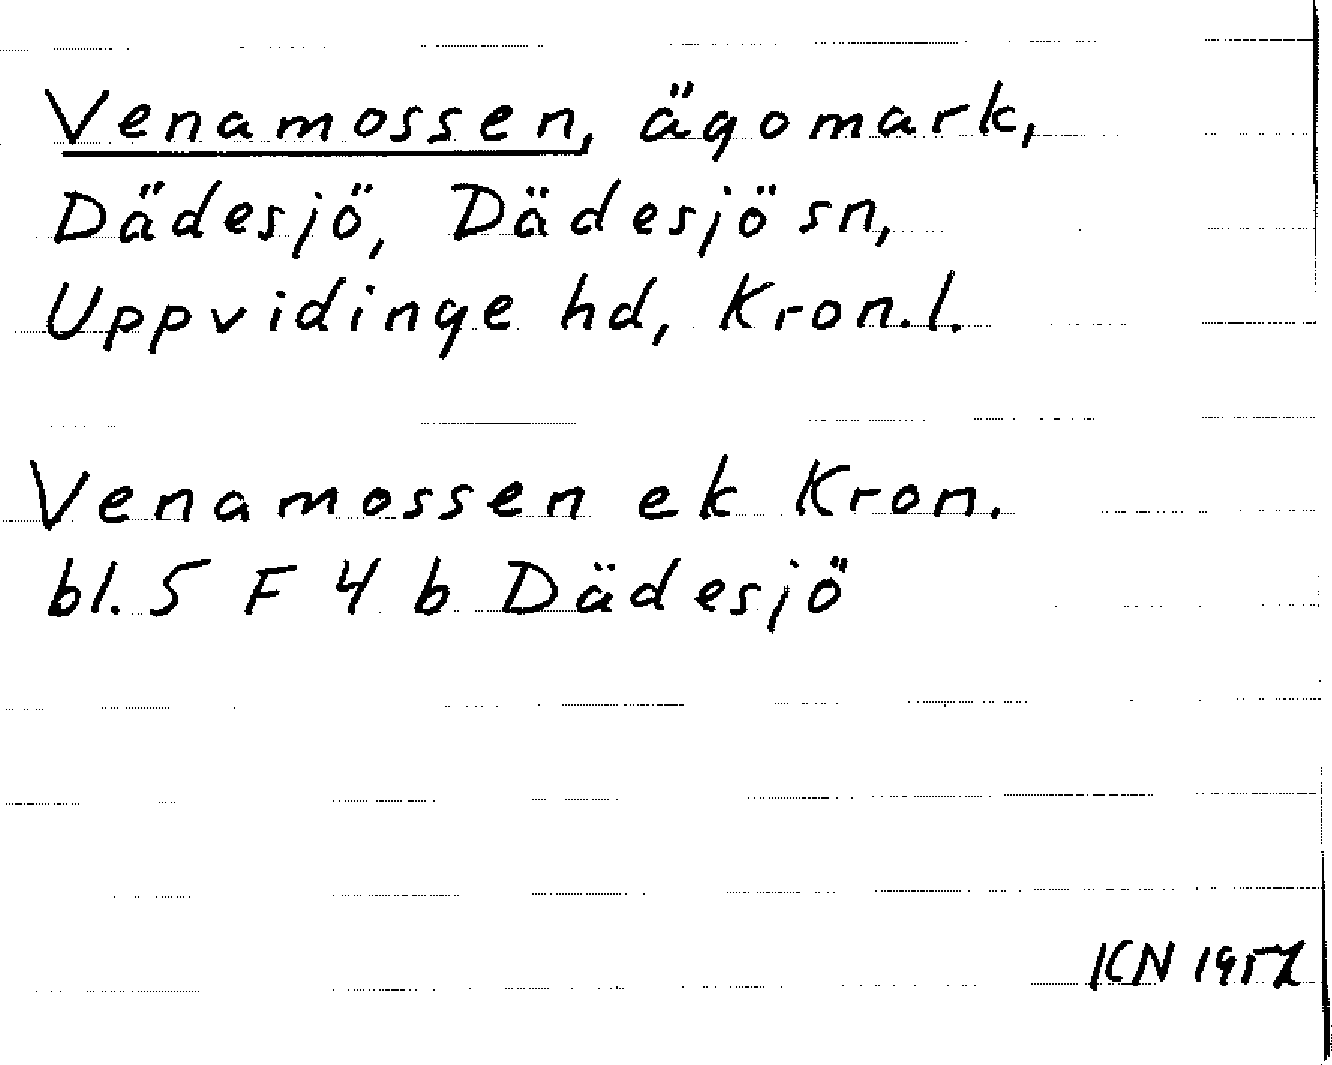 Venamossen, ägomark,
Dädesjö, Dädesjö sn,
Uppvidinge hd, Kron.l.
Venamossen ek Kron.
bl. 5 F 4 b Dädesjö
KN 1957